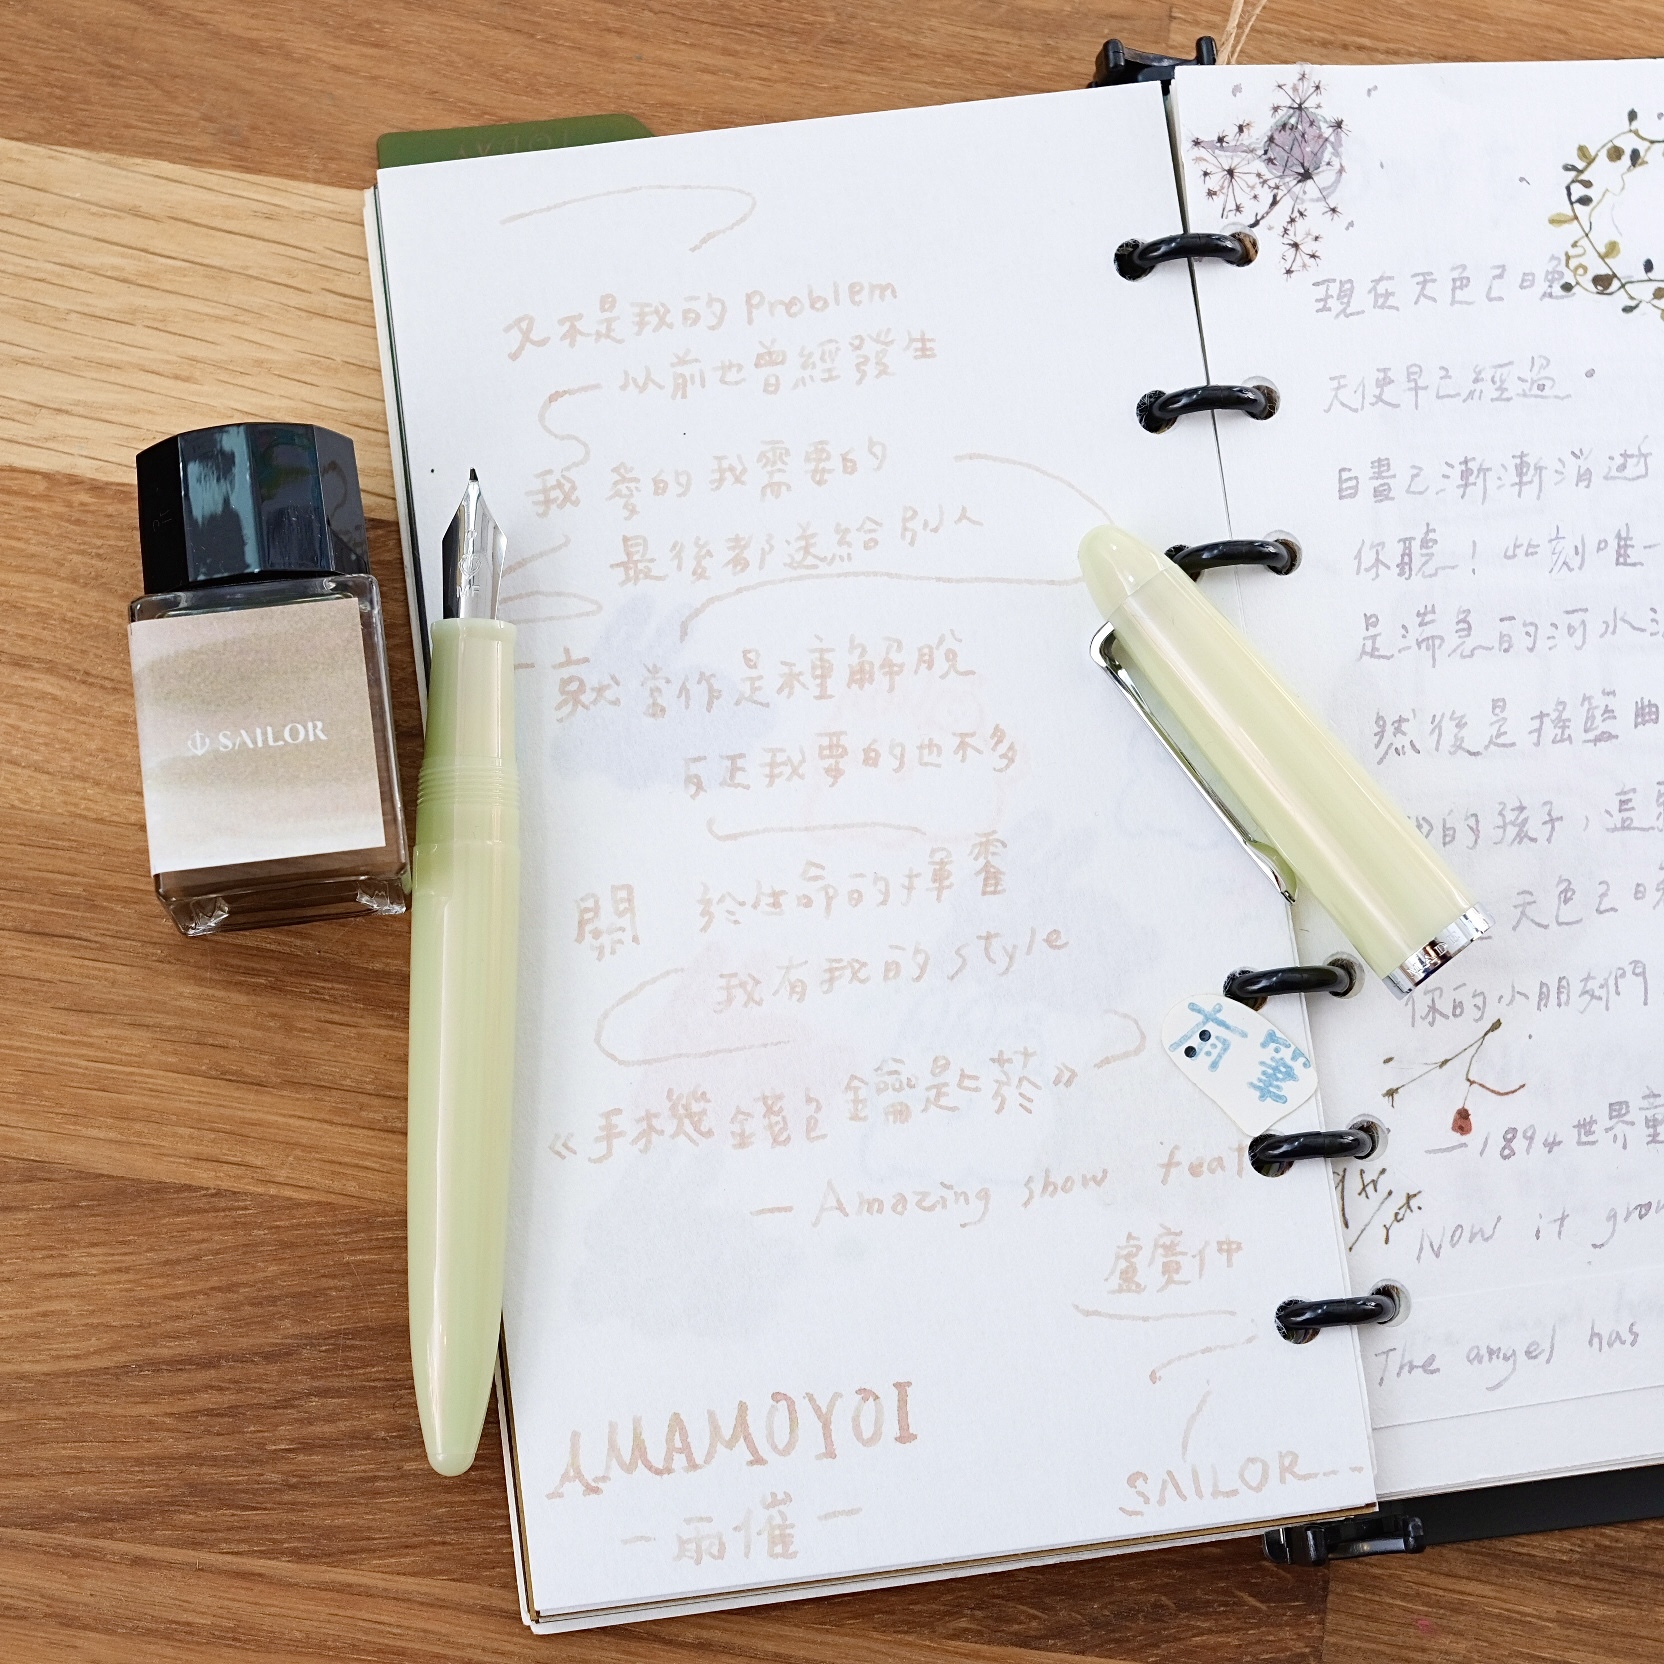 又不是我的 problem
以前也曾經發生
我愛的我需要的
最後都送給別人
就當作是種解脫
反正我要的也不多
關於生命的揮霍
我有我的 style
《手機錢包鑰匙菸》
— Amazing show feat
盧廣仲
AMAMOYOI
－雨催－
SAILOR---
SAILOR
MF
有筆
現在天色已晚
天使早已經過。
白晝已漸漸消逝
你聽！此刻唯一
是湍急的河水
然後是搖籃曲
的孩子，這
天色已晚
你的小朋友們
—1894世界童
Now it grow
The angel has